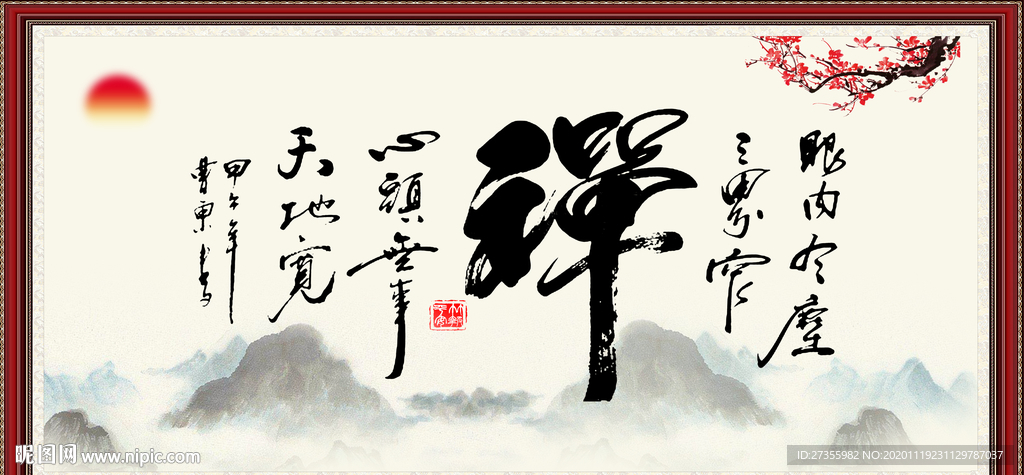 眼内有塵
三界窄
禪
心頭無事
天地寬
甲午年
昵图网 www.nipic.com
ID:27355982 NO:20201119231129787037